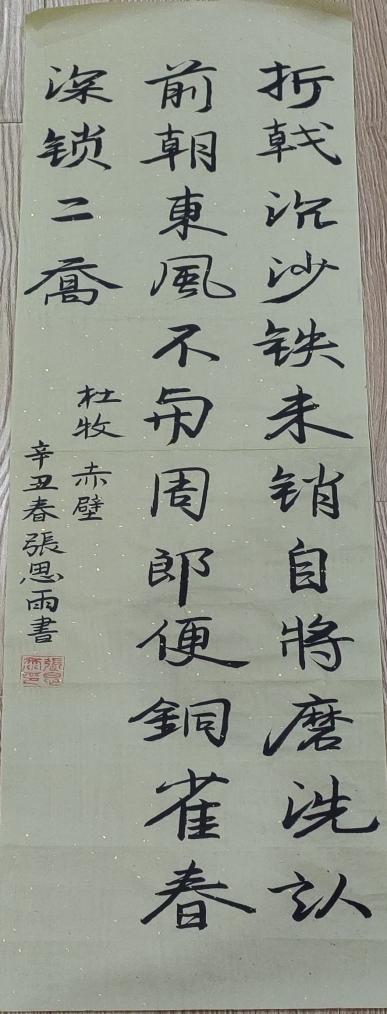 折戟沉沙铁未销自將磨洗认
前朝東風不与周郎便銅雀春
深锁二喬
杜牧 赤壁
辛丑春張思雨書